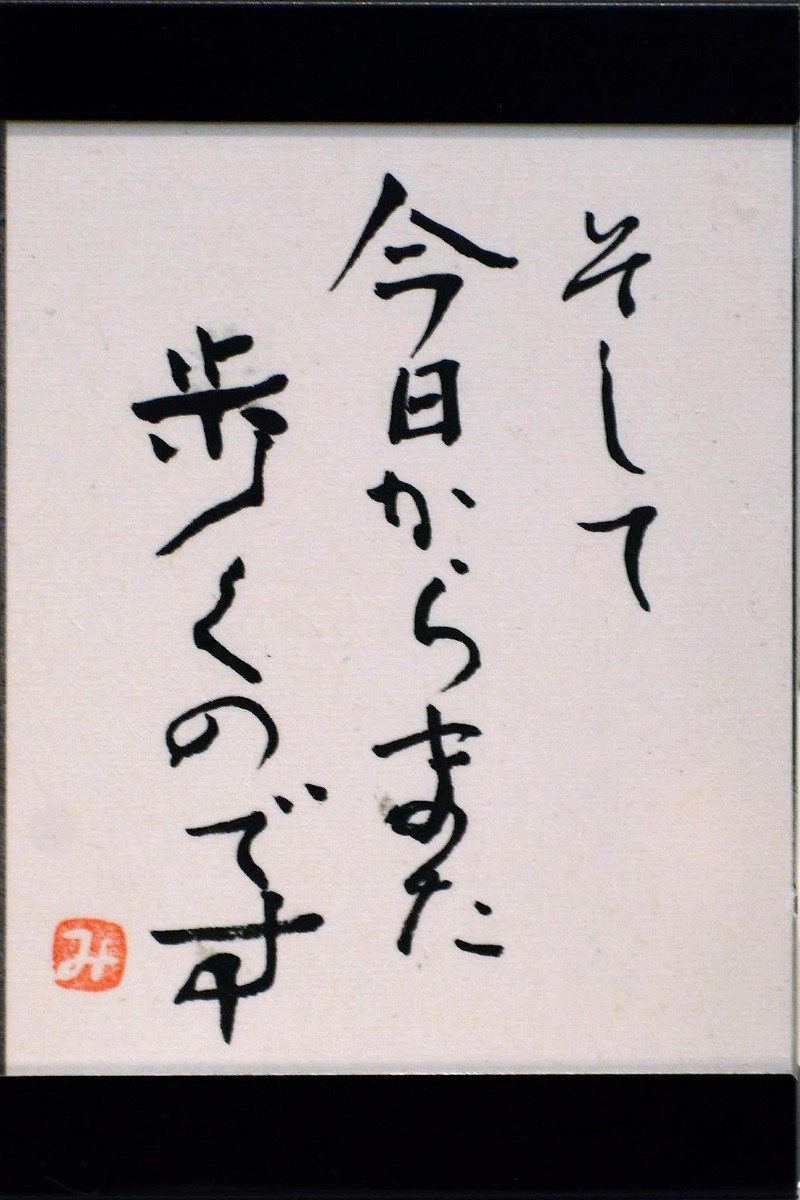 そして
今日からまた
歩くのです
み